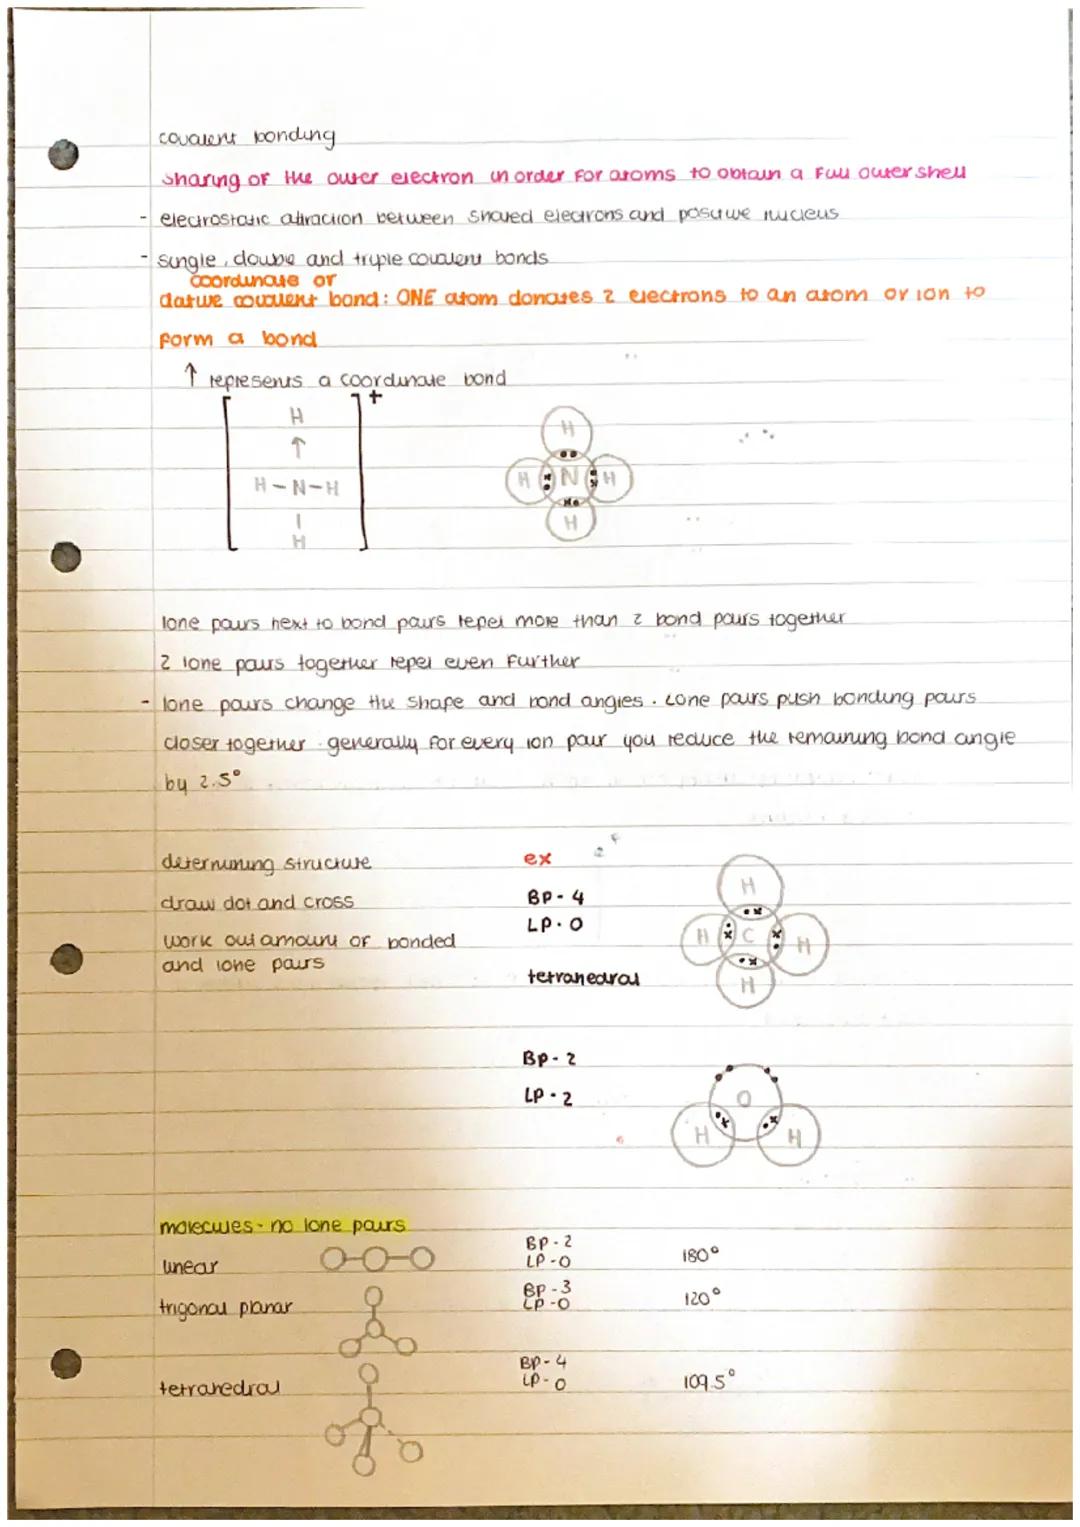 covalent bonding
sharing of the outer electron in order for atoms to obtain a full outer shell
- electrostatic attraction between shared electrons and positive nucleus
- single, double and triple covalent bonds
coordinate or
dative covalent bond: ONE atom donates 2 electrons to an atom or ion to
form a bond
↑ represents a coordinate bond
+
H
↑
H-N-H
|
H
H
H N H
H
lone pairs next to bond pairs repel more than 2 bond pairs together
2 lone pairs together repel even further
- lone pairs change the shape and bond angles. Lone pairs push bonding pairs
closer together. generally for every ion pair you reduce the remaining bond angle
by 2.5°
determining structure
draw dot and cross
work out amount of bonded
and lone pairs
ex
BP-4
LP-0
tetrahedral
H
H C H
H
BP-2
LP-2
O
H H
molecules- no lone pairs
linear
BP-2
LP-0
180°
trigonal planar
BP-3
LP-0
120°
tetrahedral
BP-4
LP-0
109.5°